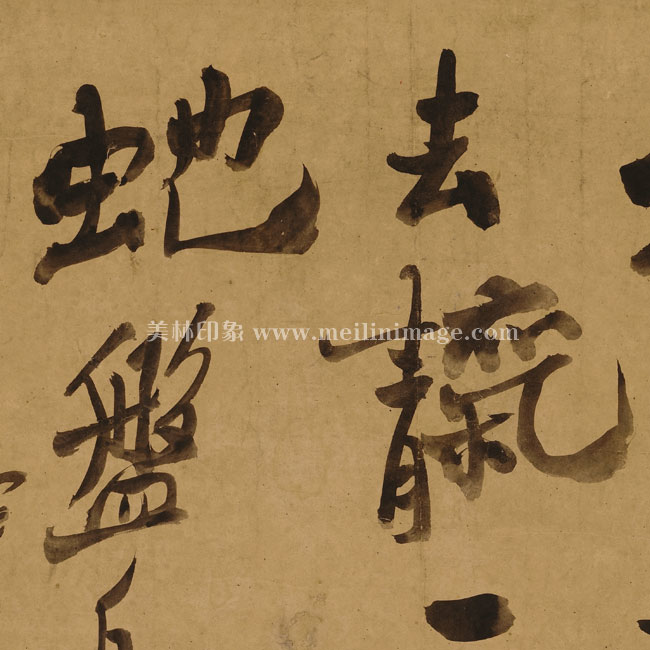 去靝一
虵盤
美林印象 www.meilinimage.com